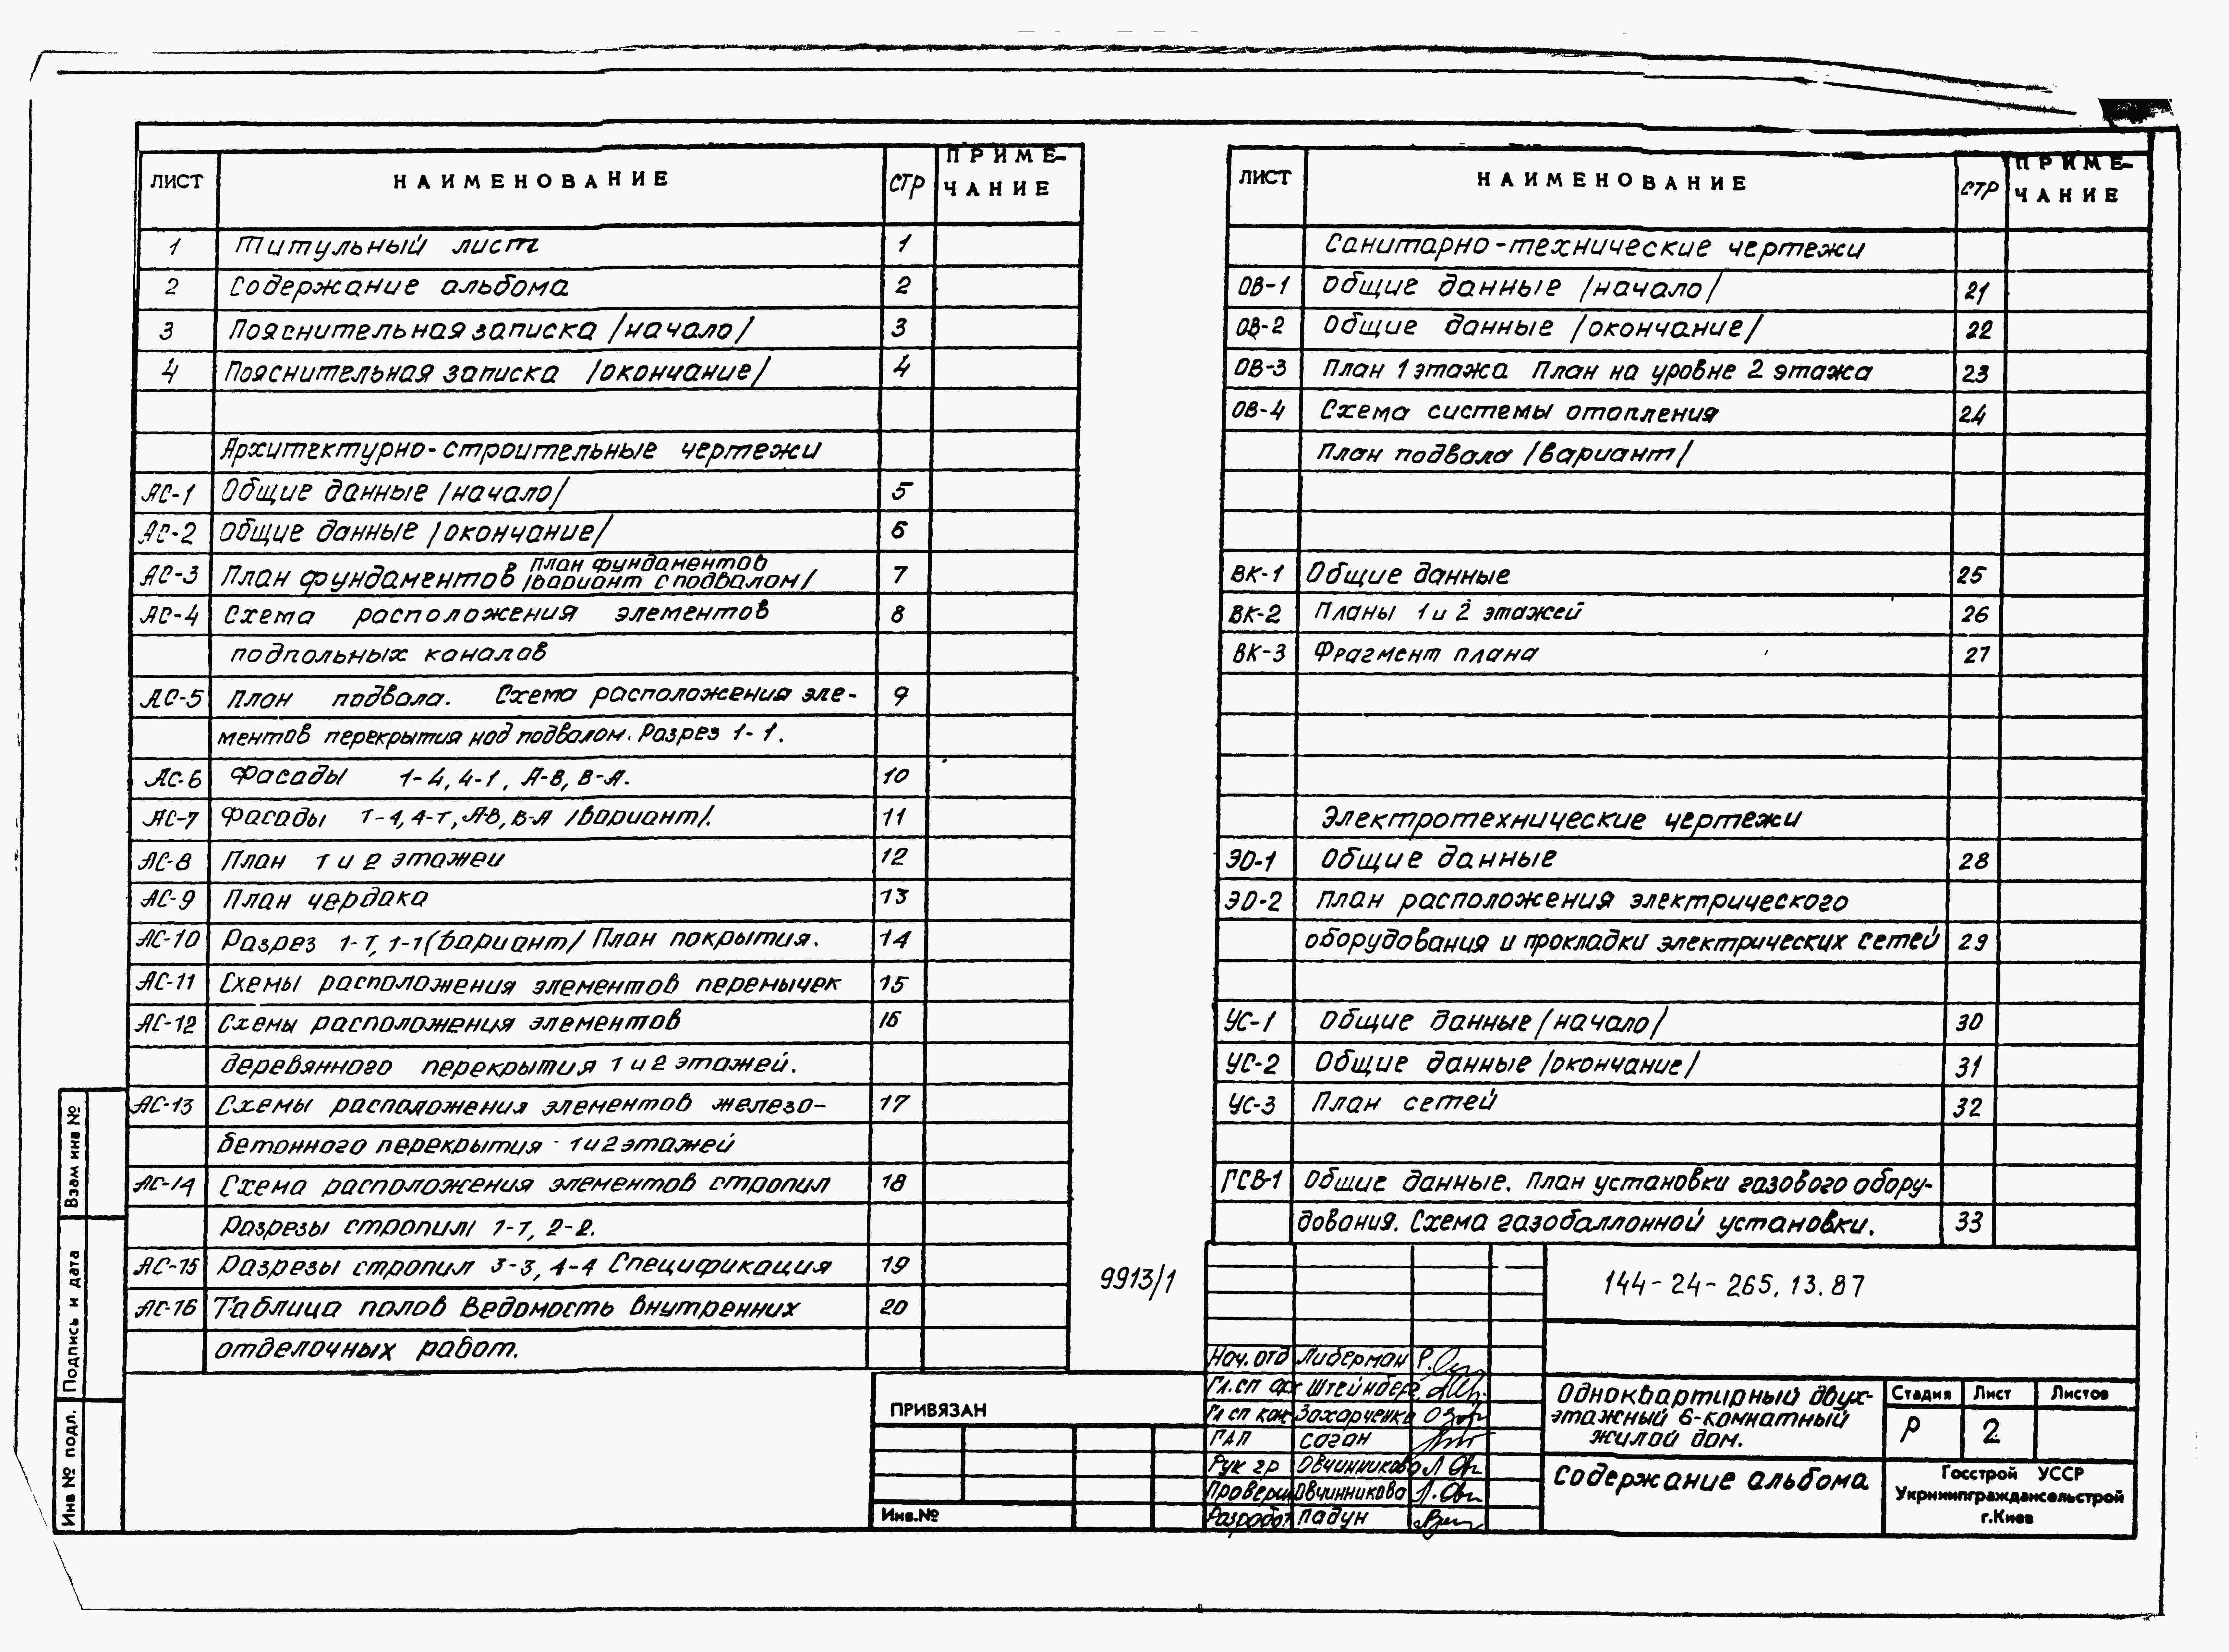 ЛИСТ НАИМЕНОВАНИЕ СТР ПРИМЕ-
ЧАНИЕ
1 Титульный лист 1
2 Содержание альбома 2
3 Пояснительная записка /начало/ 3
4 Пояснительная записка /окончание/ 4
Архитектурно-строительные чертежи
АС-1 Общие данные /начало/ 5
АС-2 Общие данные /окончание/ 6
АС-3 План фундаментов План фундаментов /вариант с подвалом/ 7
АС-4 Схема расположения элементов 8
подпольных каналов
АС-5 План подвала. Схема расположения эле- 9
ментов перекрытия над подвалом. Разрез 1-1.
АС-6 Фасады 1-4, 4-1, А-В, В-А. 10
АС-7 Фасады 1-4, 4-1, А-В, В-А /вариант/. 11
АС-8 План 1 и 2 этажей 12
АС-9 План чердака 13
АС-10 Разрез 1-1, 1-1 (вариант/ План покрытия. 14
АС-11 Схемы расположения элементов перемычек 15
АС-12 Схемы расположения элементов 16
деревянного перекрытия 1 и 2 этажей.
АС-13 Схемы расположения элементов железо- 17
бетонного перекрытия 1 и 2 этажей
АС-14 Схема расположения элементов стропил 18
Разрезы стропил 1-1, 2-2.
АС-15 Разрезы стропил 3-3, 4-4 Спецификация 19
АС-16 Таблица полов Ведомость внутренних 20
отделочных работ.
ЛИСТ НАИМЕНОВАНИЕ СТР ПРИМЕ-
ЧАНИЕ
Санитарно-технические чертежи
ОВ-1 Общие данные /начало/ 21
ОВ-2 Общие данные /окончание/ 22
ОВ-3 План 1 этажа План на уровне 2 этажа 23
ОВ-4 Схема системы отопления 24
План подвала /вариант/
ВК-1 Общие данные 25
ВК-2 Планы 1 и 2 этажей 26
ВК-3 Фрагмент плана 27
Электротехнические чертежи
ЭО-1 Общие данные 28
ЭО-2 План расположения электрического
оборудования и прокладки электрических сетей 29
УС-1 Общие данные /начало/ 30
УС-2 Общие данные /окончание/ 31
УС-3 План сетей 32
ГСВ-1 Общие данные. План установки газового обору-
дования. Схема газобаллонной установки. 33
9913/1
144-24-265.13.87
Нач. отд Либерман
Гл. сп арх Штейнберг
Гл сп кон Захарченко
ГАП Саган
Рук гр Овчинникова
Проверил Овчинникова
Разработ Падун
Одноквартирный двух-
этажный 6-комнатный
жилой дом.
Стадия Лист Листов
Р 2
Содержание альбома
Госстрой УССР
Укрниипграждансельстрой
г. Киев
ПРИВЯЗАН
Инв.№
Взам инв №
Подпись и дата
Инв № подл.